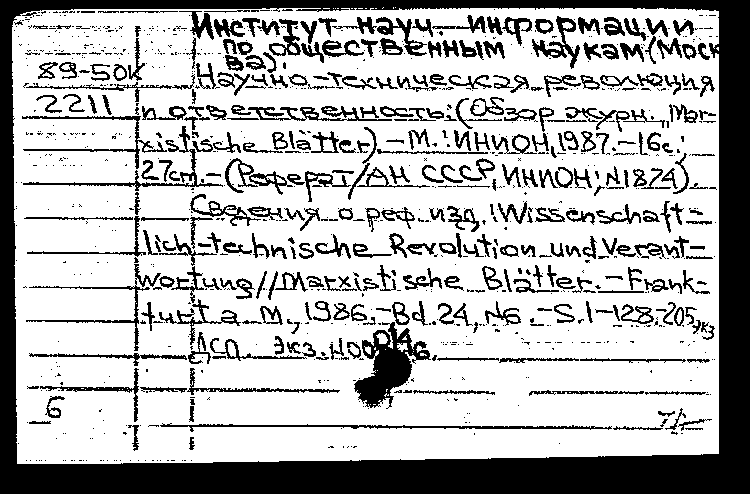 Институт науч. информации
по общественным наукам (Моск
ва).
89-50К Научно-техническая революция
2211 и ответственность: (Обзор журн. „Mar-
xistische Blätter). – М.: ИНИОН, 1987. – 16с.;
27см. – (Реферат / АН СССР, ИНИОН; N1874).
Сведения о реф. изд.: Wissenschaft-
lich-technische Revolution und Verant-
wortung // Marxistische Blätter. – Frank-
furt a. M., 1986. – Bd. 24, N6. – S. 1-128. 205 экз
ДСП. Экз. N00
6